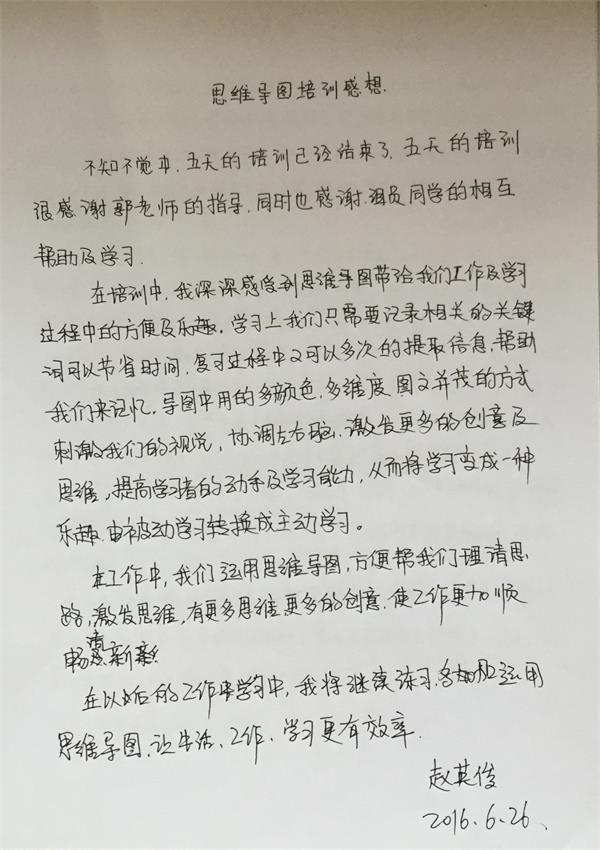 思维导图培训感想.
不知不觉中,五天的培训已经结束了,五天的培训
很感谢郭老师的指导,同时也感谢组员同学的相互
帮助及学习.
在培训中,我深深感受到思维导图带给我们工作及学习
过程中的方便及乐趣,学习上我们只需要记录相关的关键
词可以节省时间,复习过程中又可以多次的提取信息,帮助
我们来记忆,导图中用的多颜色,多维度图文并茂的方式
刺激我们的视觉,协调左右脑,激发更多的创意及
思维,提高学习者的动手及学习能力,从而将学习变成一种
乐趣.由被动学习转换成主动学习。
在工作中,我们运用思维导图,方便帮我们理清思
路,激发思维,有更多思维更多的创意.使工作更加顺
畅清新
在以后的工作学习中,我将继续练习,运用
思维导图,让生活、工作、学习更有效率.
赵英俊
2016.6.26、